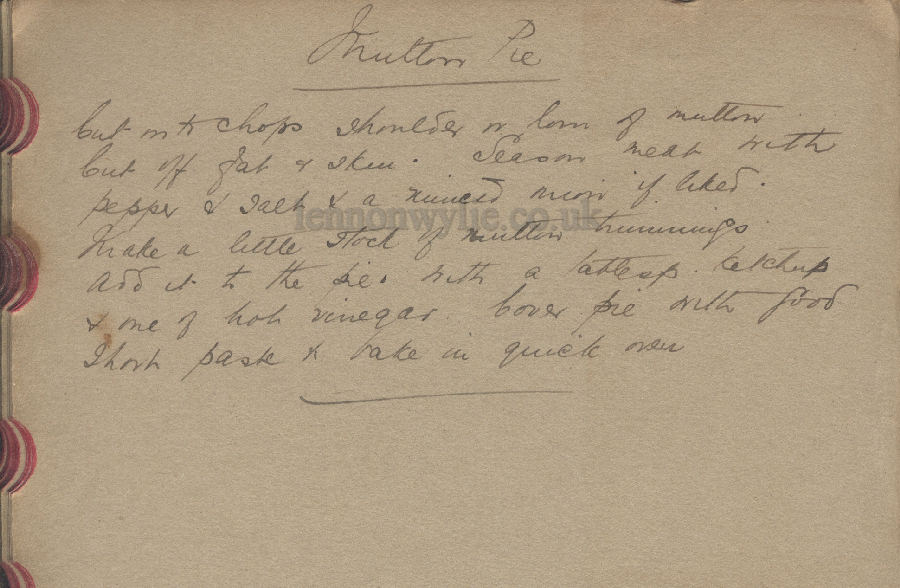 Mutton Pie
Cut into chops shoulder or loin of mutton.
Cut off fat & skin. Season meat with
pepper & salt & a minced onion if liked.
lennonwylie.co.uk
Make a little stock of mutton trimmings
Add it to the pie. with a tablesp. ketchup
& one of hot vinegar. Cover pie with good
short paste & bake in quick oven